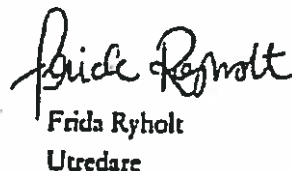 Frida Ryholt
Frida Ryholt
Utredare